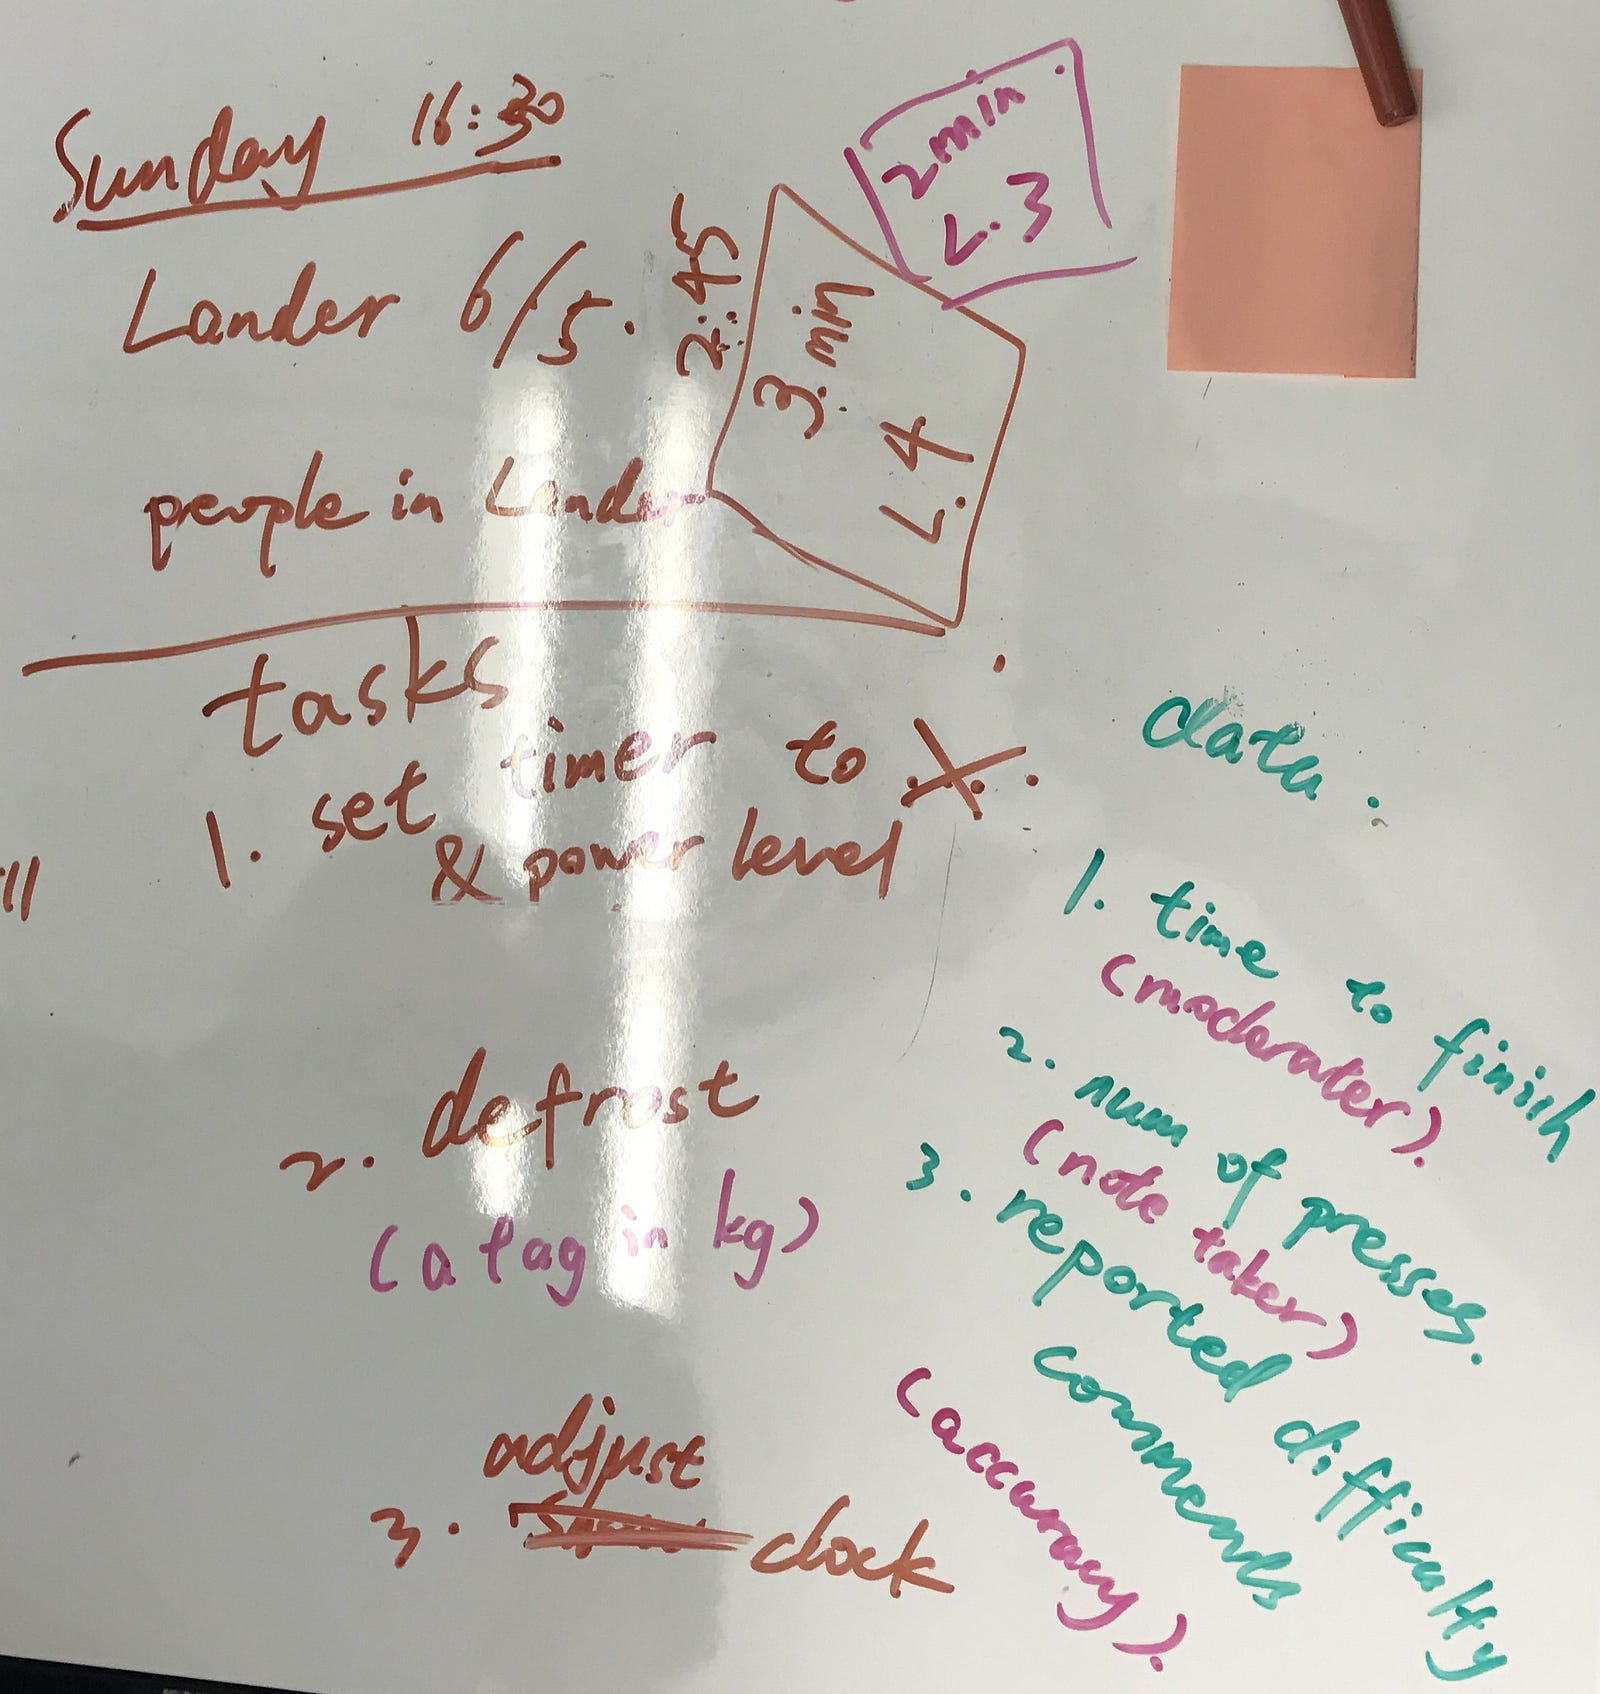 Sunday 16:30
Lander 6/5.
people in Lander
2:45
3.min
L.4
2min
L.3
tasks
1. set timer to X.
& power level
2. defrost
(a tag in kg)
adjust
3. clock
data:
1. time to finish
(moderater).
2. num of presses.
(note taker)
3. reported difficulty
comments
(accuracy).